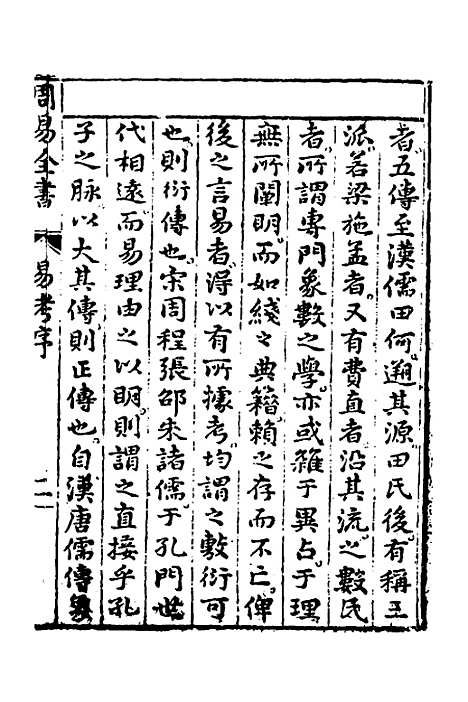 者五傳至漢儒田何遡其源田氏後有稱王
派若梁施孟者又有費直者沿其流之數民
者所謂專門象數之學亦或雜于異占于理
無所闡明而如綫之典籍賴之存而不亡俾
後之言易者得以有所據考均謂之數衍可
也則衍傳也宋周程張邵朱諸儒于孔門世
代相遠而易理由之以明則謂之直接乎孔
子之脉以大其傳則正傳也自漢唐儒傳
周易全書 易考序 二